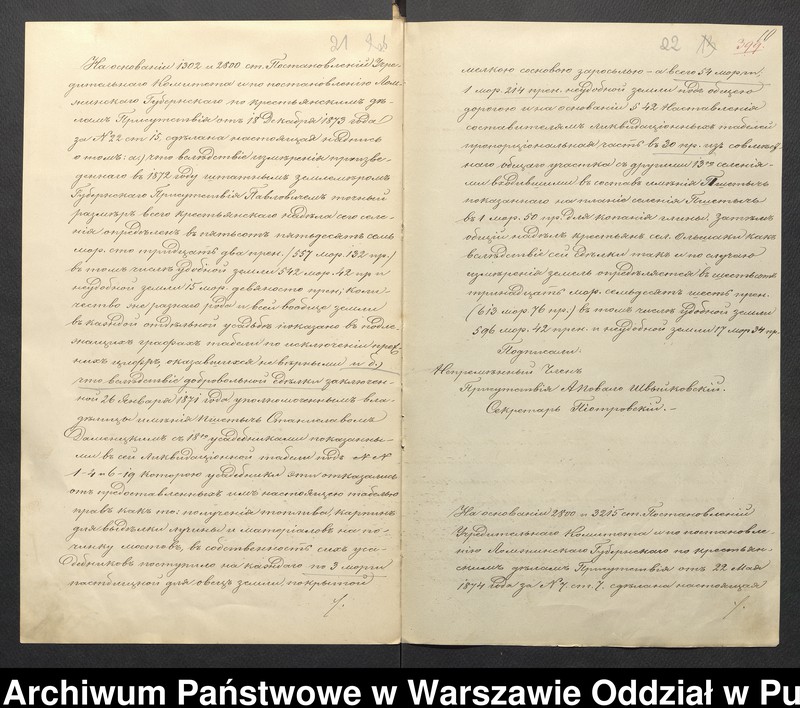 21
На основаніи 1302 и 2800 ст. Постановленій Учре-
дительнаго Комитета и по постановленію Лом-
жинскаго Губернскаго по крестьянскимъ дѣ-
ламъ Присутствія отъ 18 Декабря 1873 года
за № 22 ст. 15, сдѣлана настоящая надпись
о томъ: а) что вслѣдствіе измѣренія произве-
деннаго въ 1872 году штатнымъ землемѣромъ
Губернскаго Присутствія Павловичемъ точный
размѣръ всего крестьянскаго надѣла сего селе-
нія опредѣленъ въ пятьсотъ пятьдесятъ семь
мор. сто тридцать два прен. (557 мор. 132 пр.)
въ томъ числѣ удобной земли 542 мор. 42 пр. и
неудобной земли 15 мор. девяносто прен; коли-
чество же разнаго рода и всей вообще земли
въ каждой отдѣльной усадьбѣ показано въ подле-
жащихъ графахъ табели по исключеніи преж-
нихъ цифръ, оказавшихся невѣрными и б)
что вслѣдствіе добровольной сдѣлки заключен-
ной 26 Января 1871 года уполномоченнымъ вла-
дѣлицы имѣнія Пшетычь Станиславомъ
съ 18ю усадебниками показанны-
ми въ сей Ликвидаціонной табели подъ №№
1-4 и 6-19 которою усадебники эти отказались
отъ предоставленныхъ имъ настоящею табелью
правъ какъ то: полученія топлива,
для выдѣлки лучины и матеріаловъ на по-
чинку мостовъ, въ собственность сихъ уса-
дебниковъ поступило на каждаго по 3 морги
пастбищной для овецъ земли, покрытой
./.
22
394
мелкою сосновою зарослью – а всего 54 морги,
1 мор. 214 прен. неудобной земли подъ общею
дорогою и на основаніи § 42 Наставленія
составителямъ ликвидаціонныхъ табелей
пропорціональная часть въ 30 пр. изъ совмѣст-
наго общаго участка съ другими 13ю селенія-
ми входившими въ составъ имѣнія Пшетычь
показаннаго на планѣ селенія Пшетычь
въ 1 мор. 50 пр. для копанія глины. Затѣмъ
общій надѣлъ крестьянъ сел. Ольшаки какъ
вслѣдствіе сей сдѣлки такъ и по случаю
измѣренія земель опредѣляется въ шестьсотъ
тринадцать мор. семьдесятъ шесть прен.
(613 мор. 76 пр.) въ томъ числѣ удобной земли
596 мор. 42 прен. и неудобной земли 17 мор. 34 пр.
Подписали:
Непремѣнный Членъ
Присутствія Швыйковскій.
Секретарь Піотровскій. –
На основаніи 2800 и 3215 ст. Постановленій
Учредительнаго Комитета и по постановле-
нію Ломжинскаго Губернскаго по крестьян-
скимъ дѣламъ Присутствія отъ 22 Мая
1874 года за № 7 ст. 7, сдѣлана настоящая
./.
Archiwum Państwowe w Warszawie Oddział w Pu